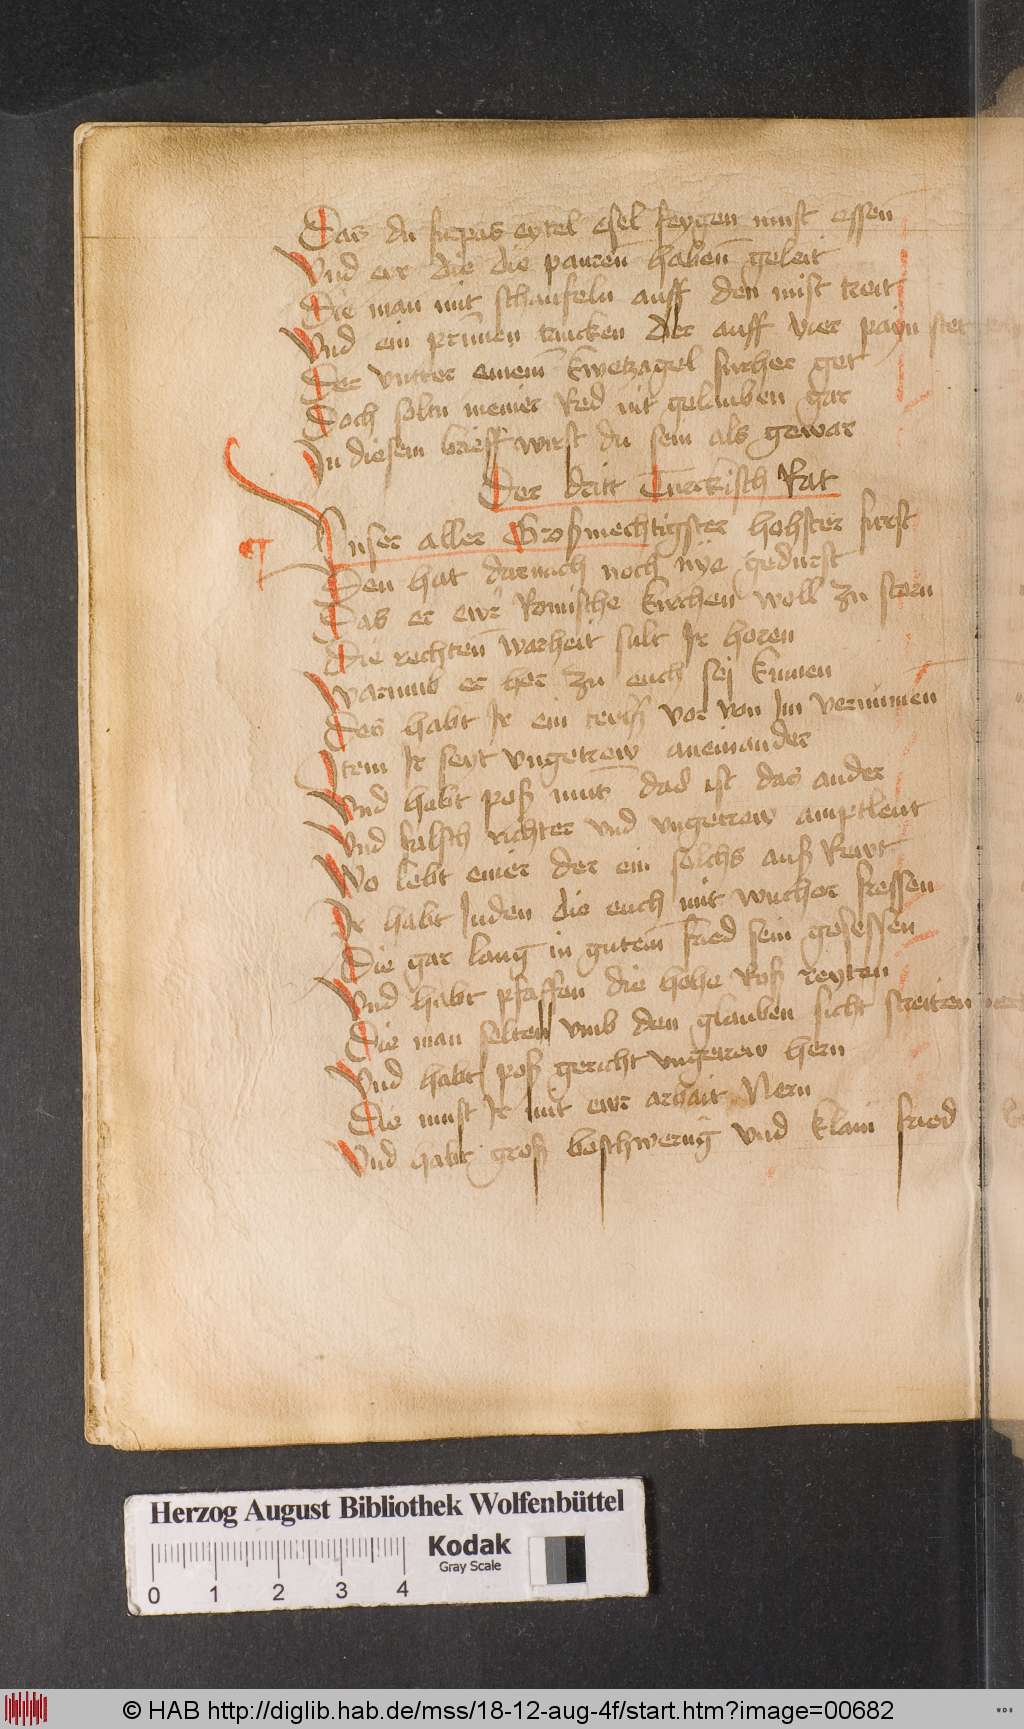 Das du furpas eytel esel feygen must essen
Vnd eyr die die pauren haben geleit
Die man mit schaufeln auff den mist treit
Vnd ein prunnen trincken der auff vier payn stet
Der vntter einem kwetzagel furher get
Doch soltu meiner Red nit gelauben gar
In diesem brieff wirst du sein als gewar
Der dritt Turckisch Rat
Vnser aller Großmechtigster hohster furst
Den hat darnach noch nye gedurst
Das er ewr Romische kirchen woll zu storn
Die rechten warheit sult Ir horen
Warumb er her zu euch sej kumen
Des habt Ir ein teyl vor von Im vernumen
Item Ir seyt vngetrew aneinander
Vnd habt poß muntz das ist das ander
Vnd falsch richter vnd vngetrew amptleut
Wo lebt einer der ein solchs auß Rewt
Ir habt Juden die euch mit wucher fressen
Die gar lang in gutem fried sein gesessen
Vnd habt pfaffen die hohe Roß reyten
Die man selten vmb den glauben sicht streiten
Vnd habt poß gericht vngetrew hern
Die must Ir mit ewr arbait Nern
Vnd habt groß beschwerung vnd klain fried
Herzog August Bibliothek Wolfenbüttel
Kodak
Gray Scale
0 1 2 3 4
© HAB http://diglib.hab.de/mss/18-12-aug-4f/start.htm?image=00682